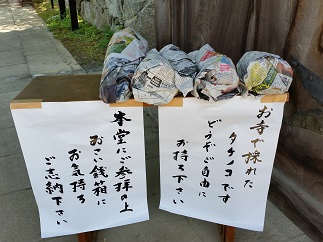 お寺で採れた
タケノコです
どうぞご自由に
お持ち下さい
本堂にご参拝の上
おさい銭箱に
お気持ち
ご志納下さい